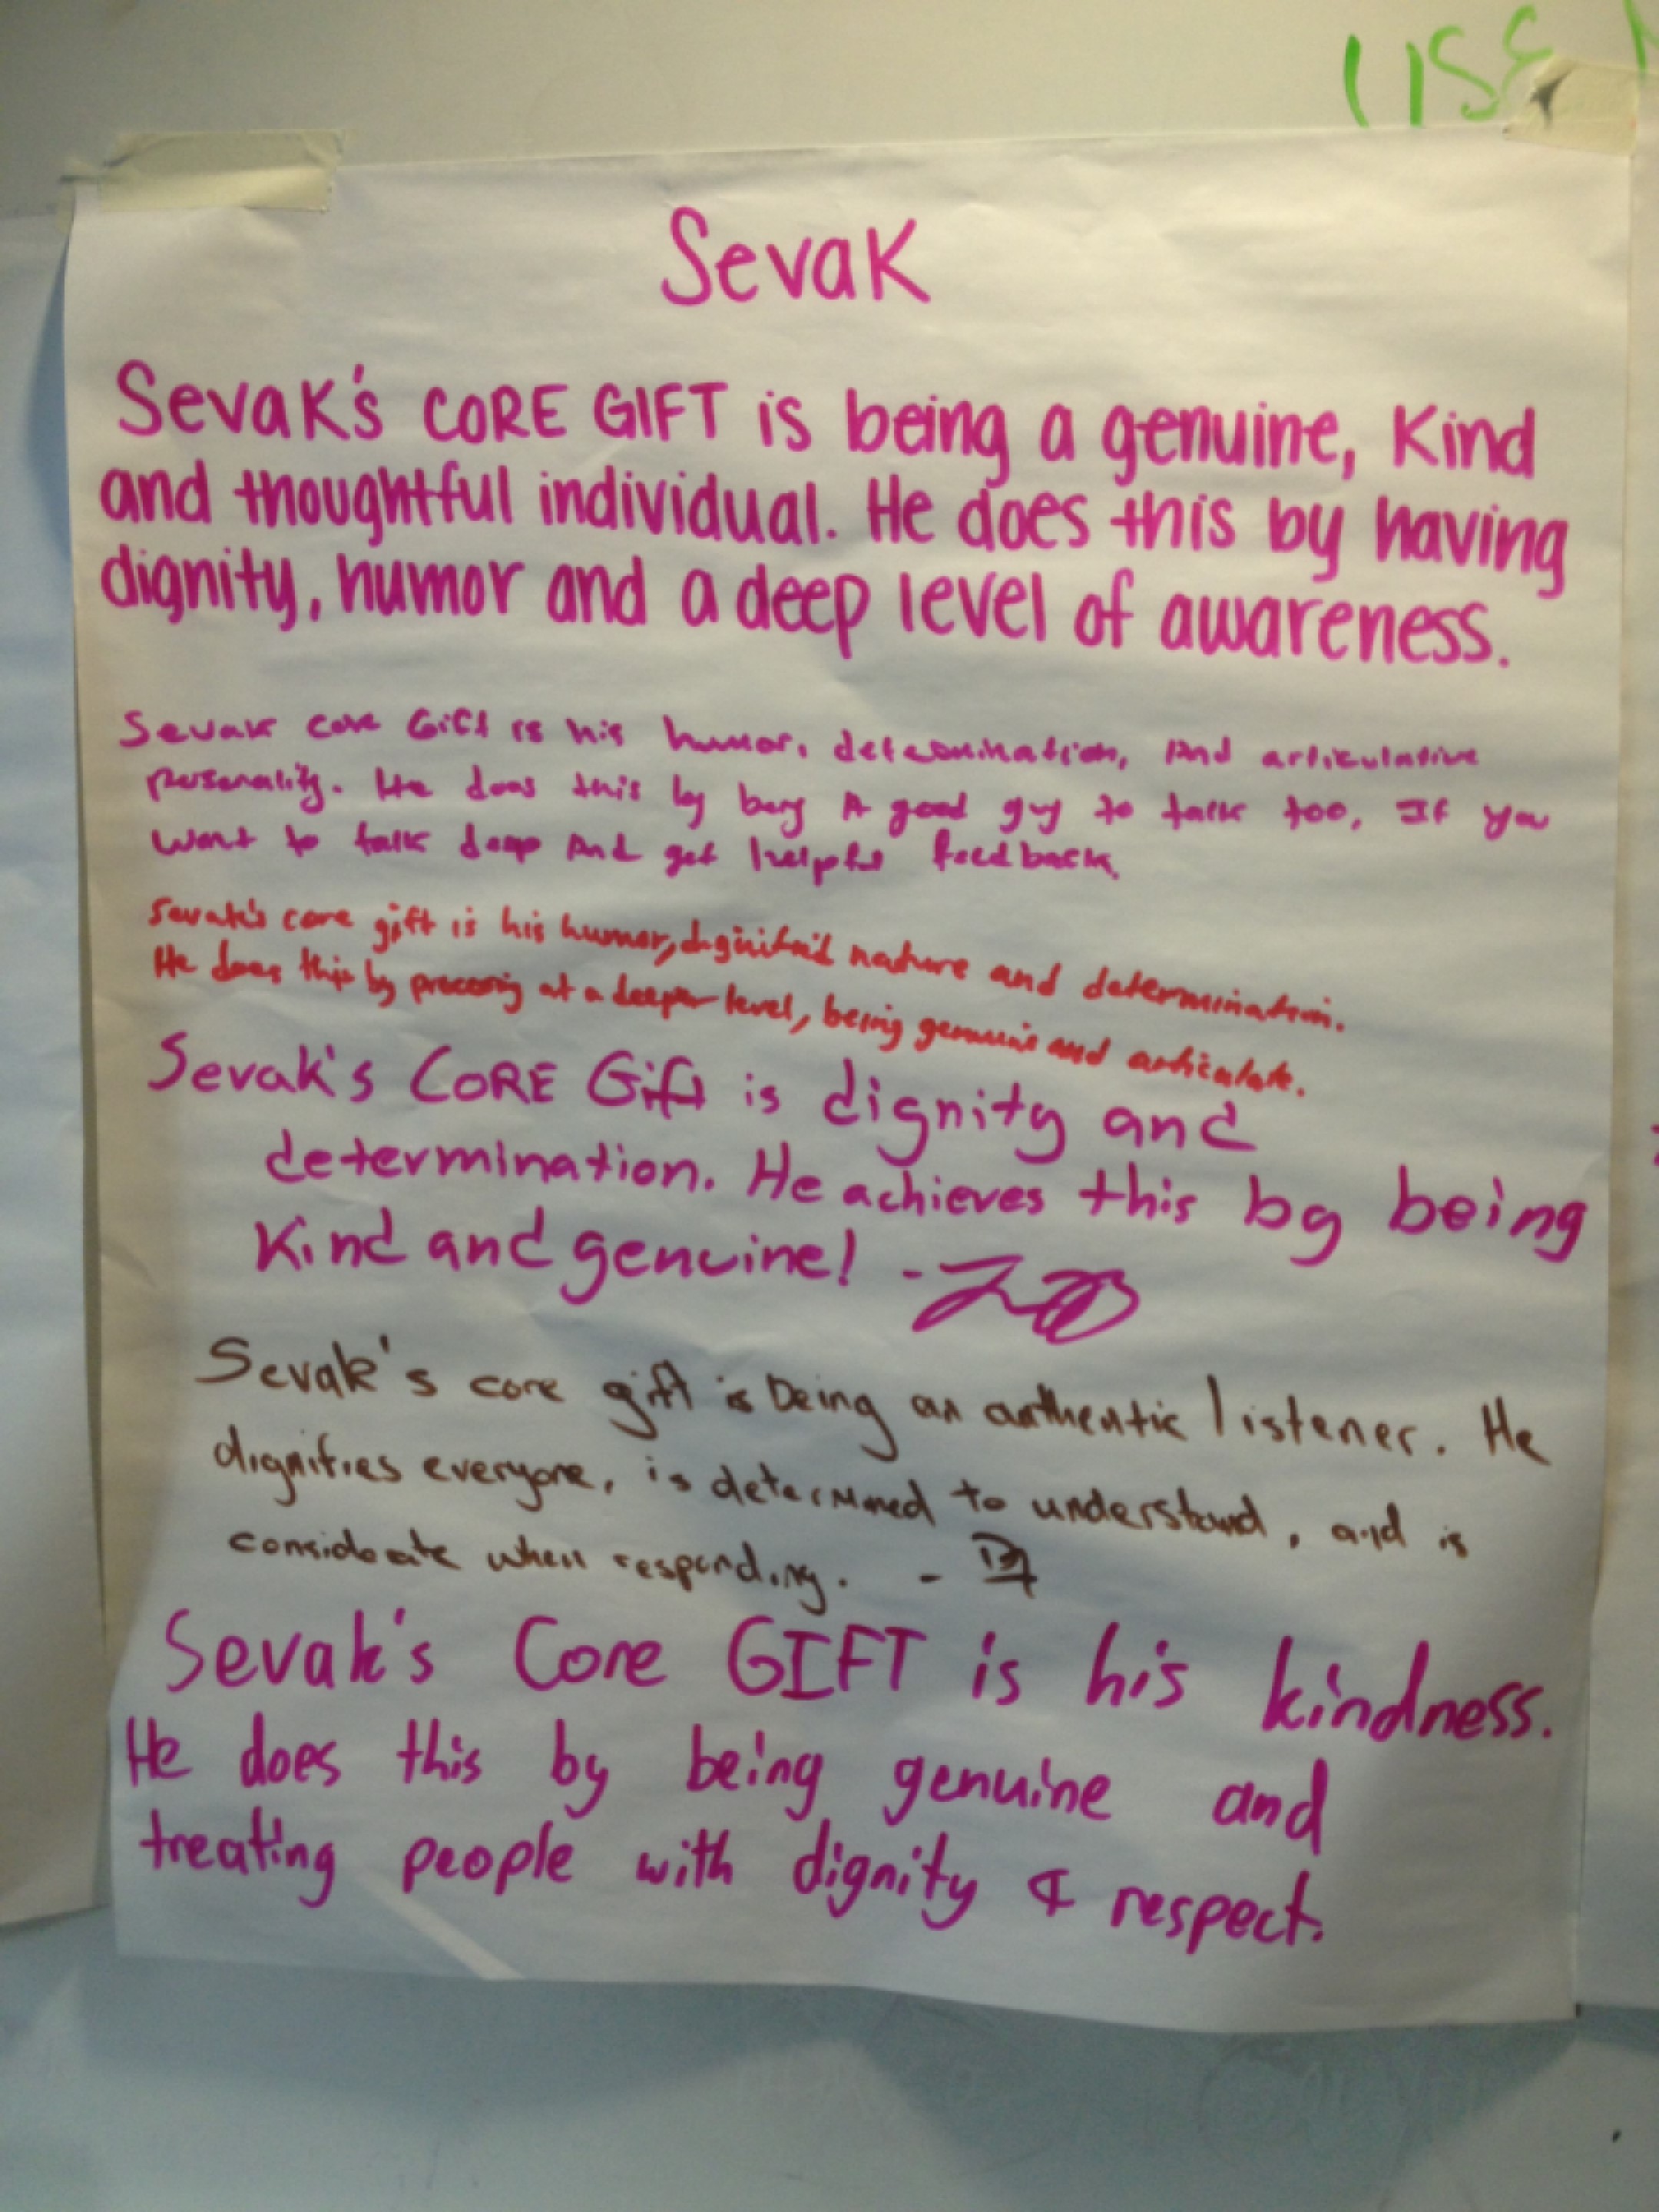 USE
Sevak
Sevak's CORE GIFT is being a genuine, Kind
and thoughtful individual. He does this by having
dignity, humor and a deep level of awareness.
Sevak core Gift is his humor, determination, And articulative
personality. He does this by being A good guy to talk too, If you
want to talk deep And get helpful feedback.
Sevak's core gift is his humor, nature and determination.
He does this by processing at a deeper level, being genuine and articulate.
Sevak's CORE Gift is dignity and
determination. He achieves this by being
Kind and genuine! -
Sevak's core gift is being an authentic listener. He
dignifies everyone, is determined to understand, and is
considerate when responding. -
Sevak's Core GIFT is his kindness.
He does this by being genuine and
treating people with dignity & respect.